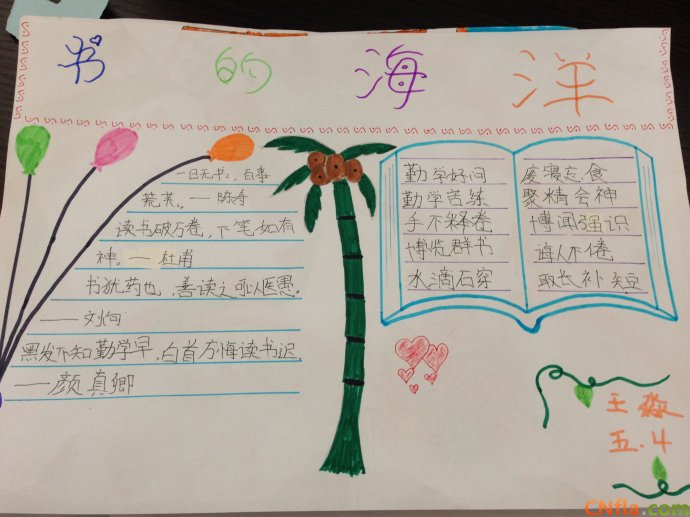 书的海洋
一日无书，百事
荒芜。——陈寿
读书破万卷，下笔如有
神。——杜甫
书犹药也，善读之可以医愚。
——刘向
黑发不知勤学早，白首方悔读书迟。
——颜真卿
勤学好问
勤学苦练
手不释卷
博览群书
水滴石穿
废寝忘食
聚精会神
博闻强识
诲人不倦
取长补短
王淼
五.4
CNfla.com